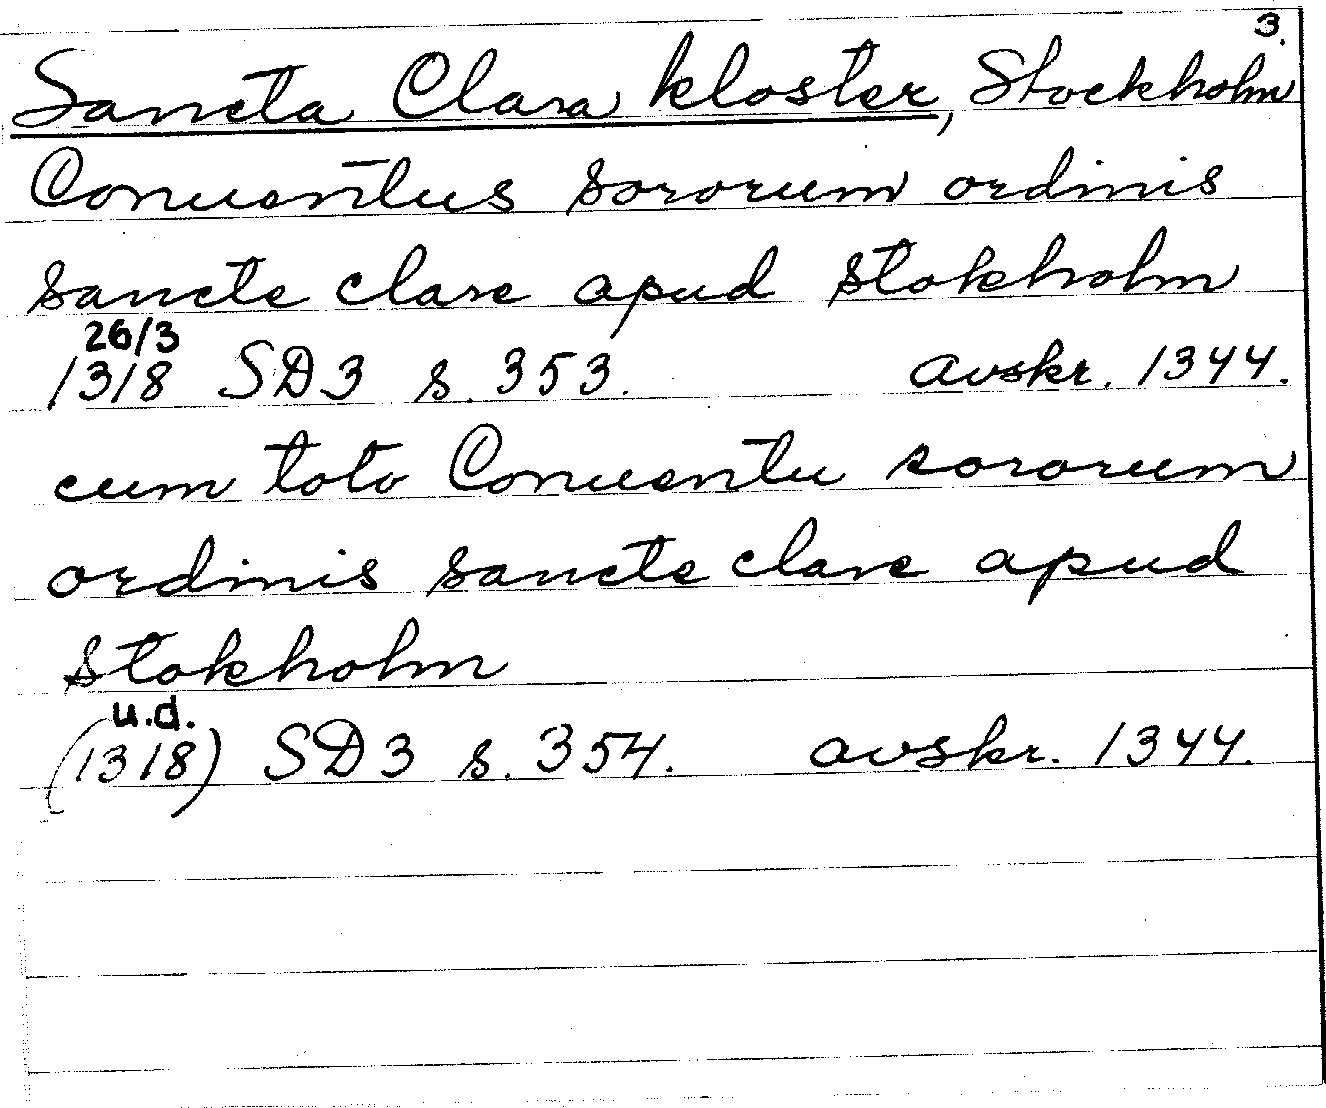 3.
Sancta Clara kloster, Stockholm
Conuentus sororum ordinis
sancte clare apud stokholm
26/3
1318 SD3 s. 353. avskr. 1344.
cum toto Conuentu sororum
ordinis sancte clare apud
stokholm
u.d.
(1318) SD3 s. 354. avskr. 1344.